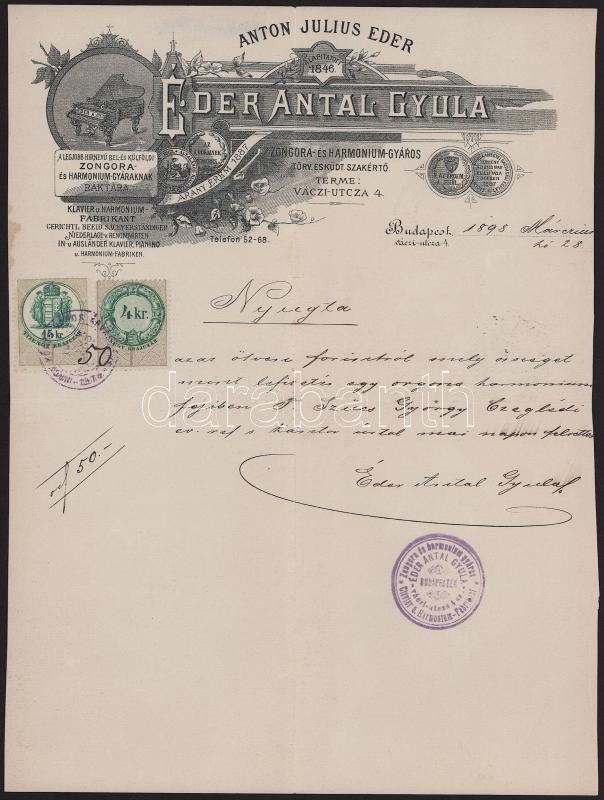 ANTON JULIUS EDER
ALAPITATOTT
1846.
ÉDER ANTAL GYULA
A LEGJOBB HIRNEVÜ BEL-ÉS KÜLFÖLDI
ZONGORA-
ÉS HARMONIUM-GYÁRAKNAK
RAKTÁRA.
AZ
ARANY ÉREM 1887
ZONGORA-ÉS HARMONIUM-GYÁROS
TÖRV. ESKÜDT. SZAKÉRTŐ.
TERME:
VÁCZI-UTCZA 4.
1887
KLAVIER U. HARMONIUM-
FABRIKANT.
GERICHTL. BEEID. SACHVERSTÄNDIGER
NIEDERLAGE V. RENOMMIRTEN
IN-U AUSLÄNDER KLAVIER, PIANINO
U. HARMONIUM-FABRIKEN.
Telefon 52-68.
Budapest, 1898 Március
váczi-utcza 4. hó 28.
15 kr.
4 kr.
50
Nyugta
azaz ötven forintról mely összeget
mint lefizetés egy orgona harmonium
fejében T. Szücs György Czeglédi
ev. ref. s kántor úrtól mai napon
of 50.-
Éder Antal Gyula
Zongora és harmonium gyáros
ÉDER ANTAL GYULA
BUDAPESTEN
váczi-utcza 4 sz.
Clavier & Harmonium-Fabrikant
darabanth